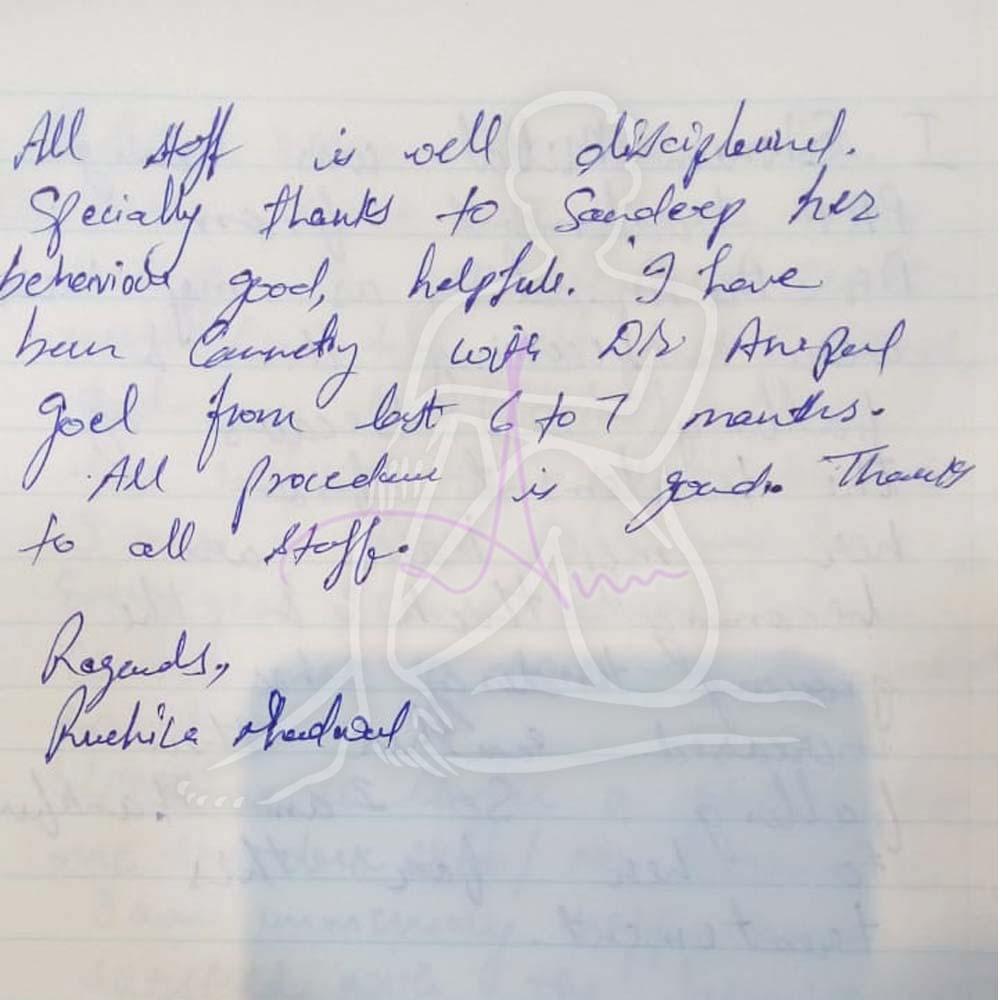 All staff is well disciplined.
Specially thanks to Sandeep her
behaviour good, helpful. I have
been with Dr
goel from last 6 to 7 months.
All procedure is good. Thanks
to all staff.
Regards,
Ruchika